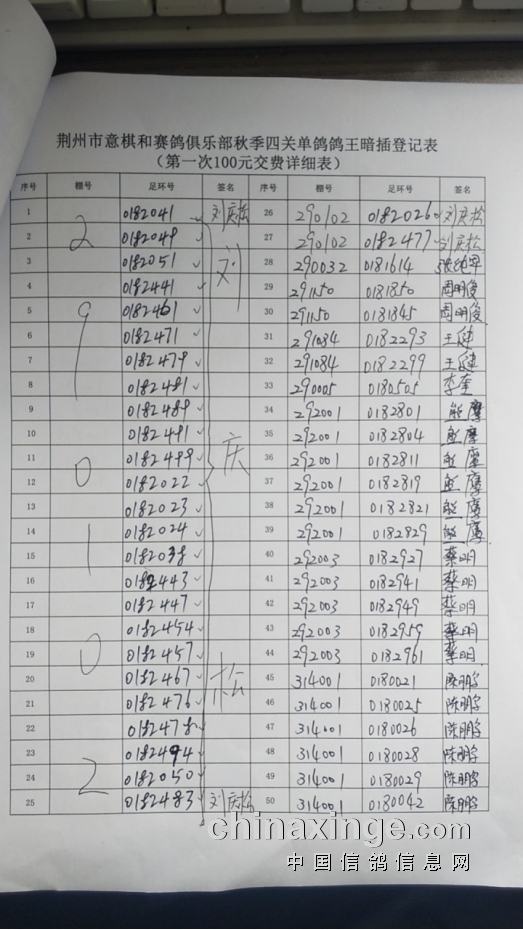 荆州市意棋和赛鸽俱乐部秋季四关单鸽鸽王暗插登记表
（第一次100元交费详细表）
序号 棚号 足环号 签名 序号 棚号 足环号 签名
1 0182041 刘庆松 26 290102 0182026 刘庆松
2 0182049 27 290102 0182477 刘庆松
3 0182051 28 290032 0181614
4 0182441 29 291150 0181850 周明俊
5 0182461 30 291150 0181845 周明俊
6 0182471 31 291084 0182293 王健
7 0182479 32 291084 0182299 王健
8 0182481 33 290005 0180505 李奎
9 0182489 34 292001 0182801 熊摩
10 0182491 35 292001 0182804 熊摩
11 0182499 36 292001 0182811 熊摩
12 0182022 37 292001 0182819 熊摩
13 0182023 38 292001 0182821 熊摩
14 0182024 39 292001 0182829 熊摩
15 0182038 40 292003 0182927 蔡明
16 0182443 41 292003 0182941 蔡明
17 0182447 42 292003 0182949 蔡明
18 0182454 43 292003 0182959 蔡明
19 0182457 44 292003 0182961 蔡明
20 0182467 45 314001 0180021 陈鹏宇
21 0182476 46 314001 0180025 陈鹏宇
22 0182478 47 314001 0180026 陈鹏宇
23 0182494 48 314001 0180028 陈鹏宇
24 0182050 49 314001 0180029 陈鹏宇
25 0182483 刘庆松 50 314001 0180042 陈鹏宇
290102
刘庆松
chinaxinge.com
中国信鸽信息网